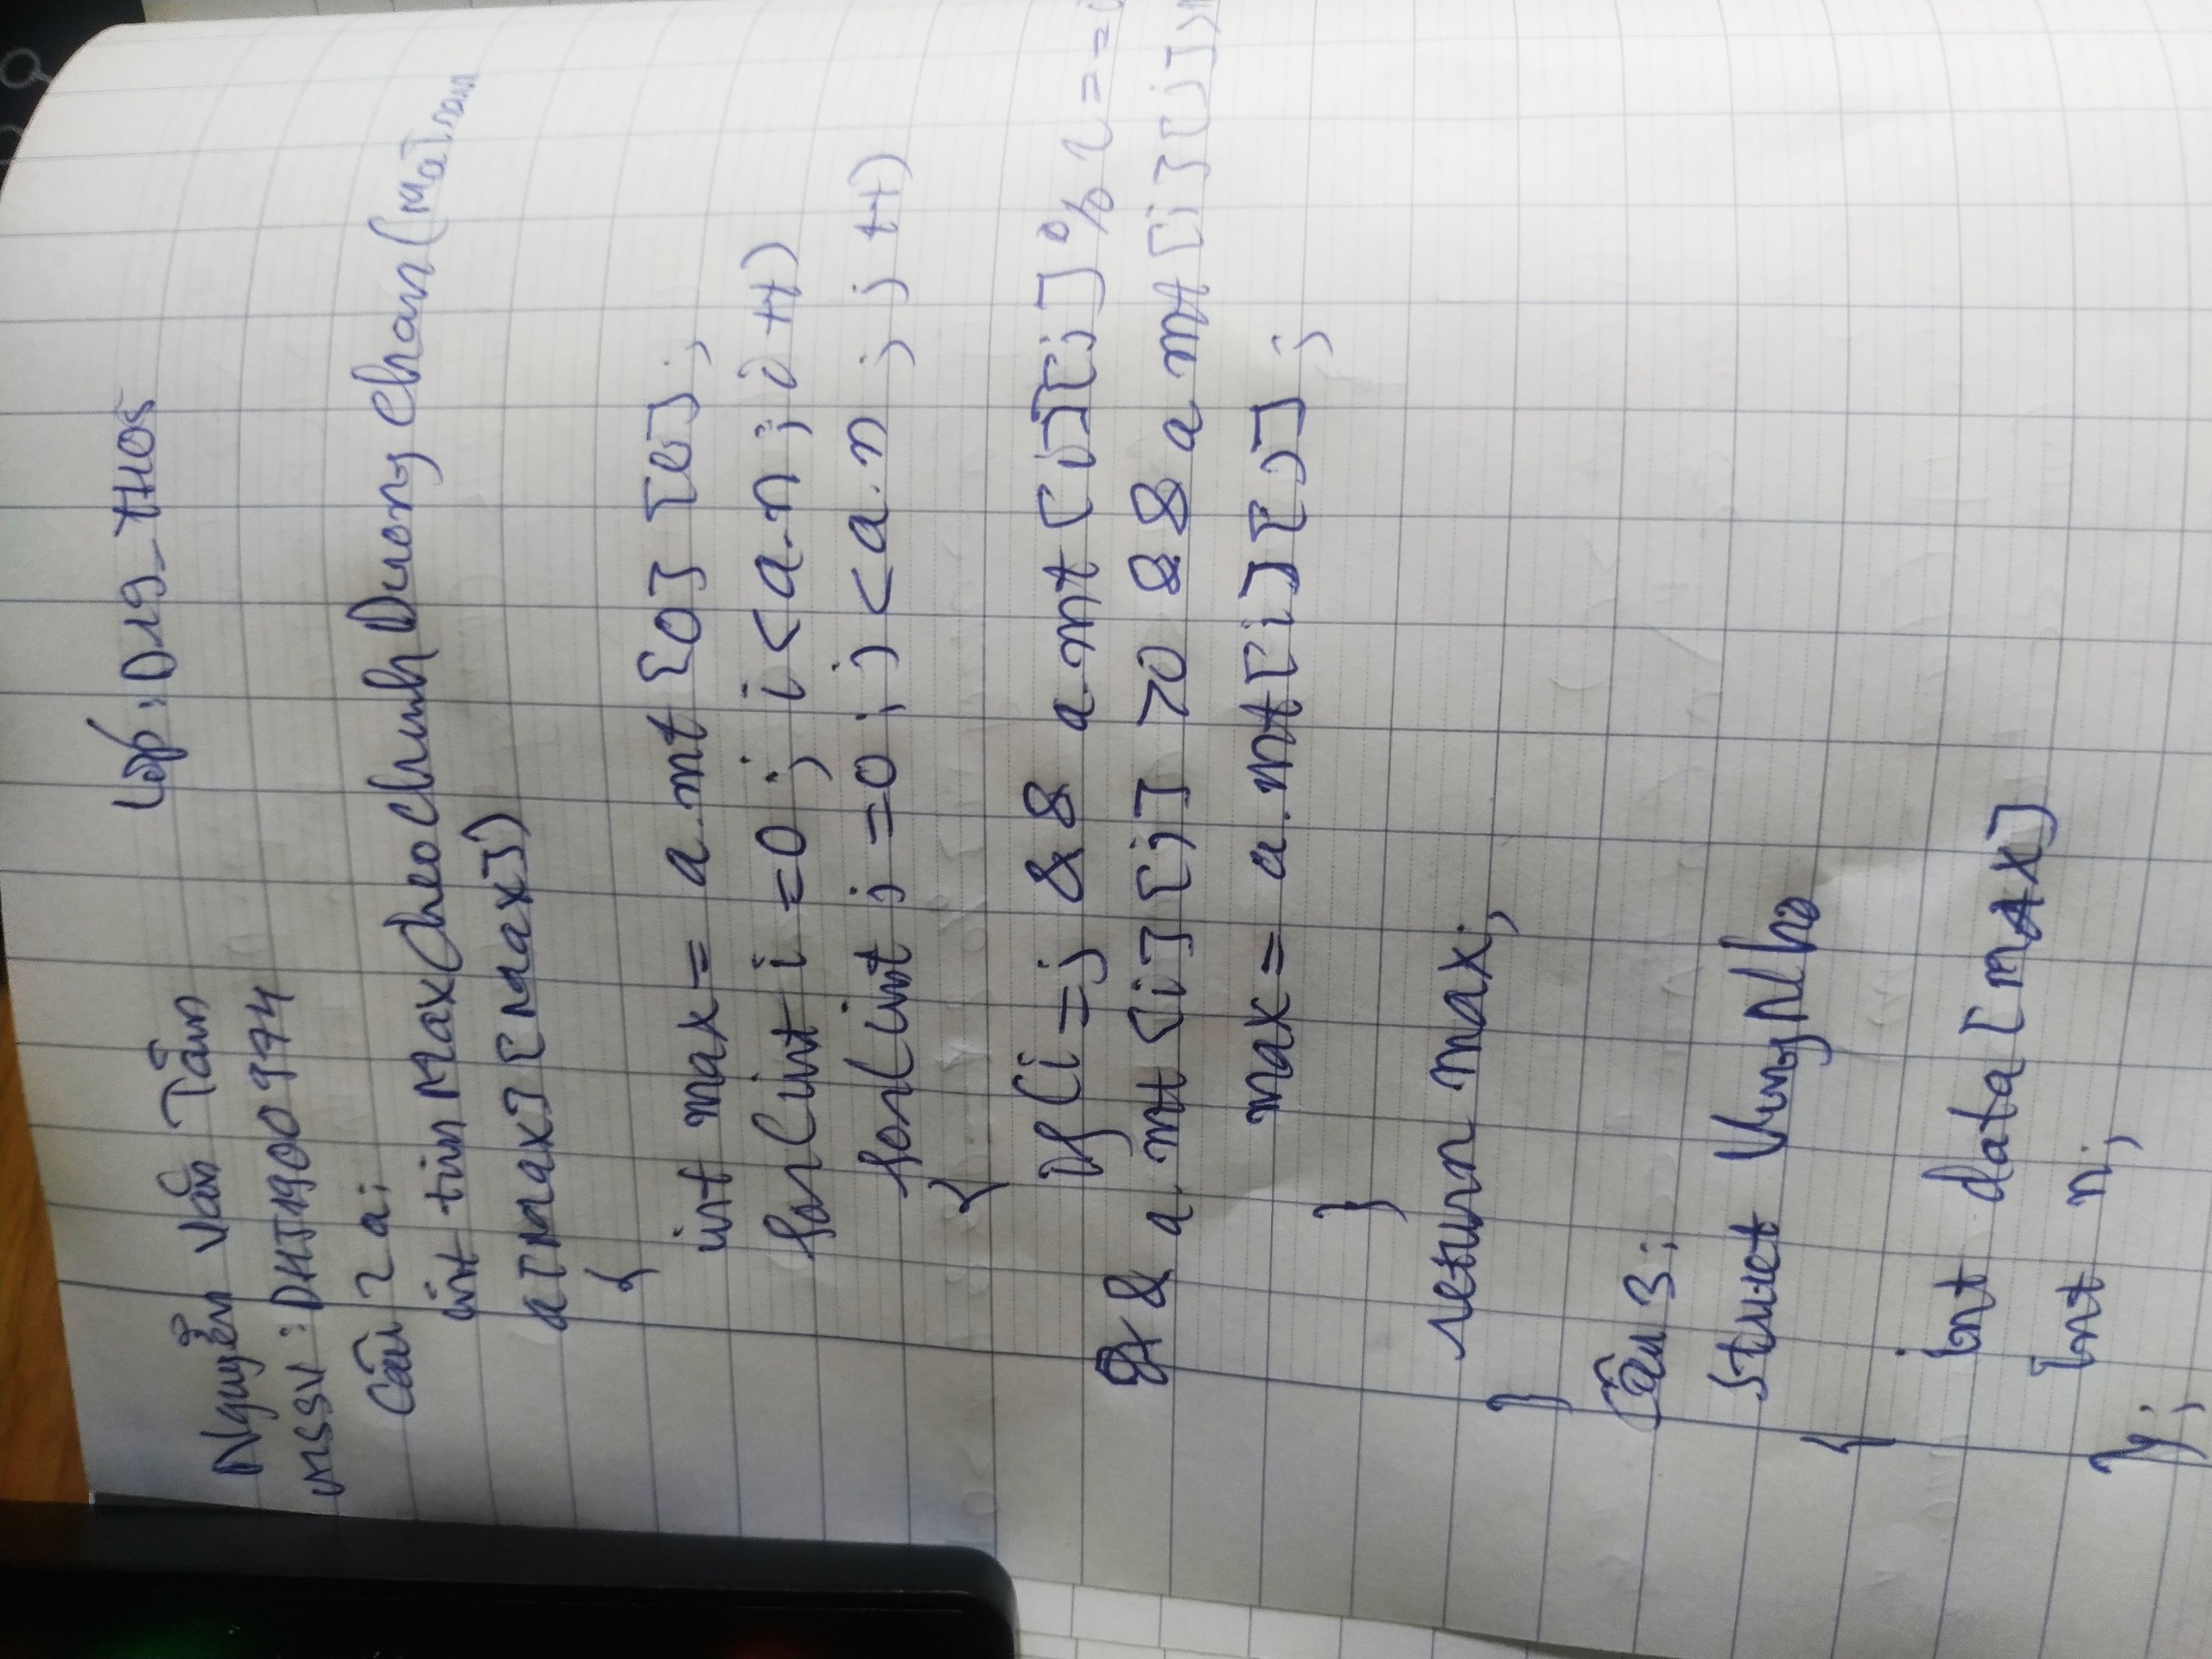 Nguyễn Văn Tấn Lớp: D19_TH05
MSSV: DHT1900 9774
Câu 2 a:
int tim Max Cheo Chinh Duong Chan (MaTran
a[max][max])
{
int max = a.mt[0][0];
for(int i=0; i<a.n; i++)
for(int j=0; j<a.n; j++)
{
if(i=j && a.mt[i][j]%2==0
&& a.mt[i][j]>0 && a.mt[i][j]>
max = a.mt[i][j];
}
return max;
}
Câu 3:
struct VungNho
{
int data[MAX]
int n;
};